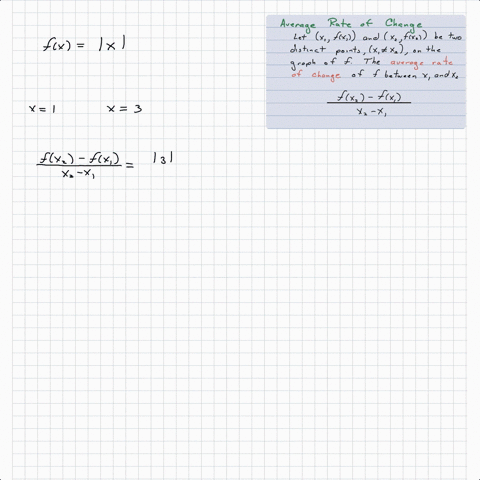 Average Rate of Change
Let (x₁, f(x₁)) and (x₂, f(x₂)) be two
distinct points, (x₁ ≠ x₂), on the
graph of f. The average rate
of change of f between x₁ and x₂
f(x₂) - f(x₁)
x₂ - x₁
f(x) = |x|
x = 1 x = 3
f(x₂) - f(x₁) = |3|
x₂ - x₁